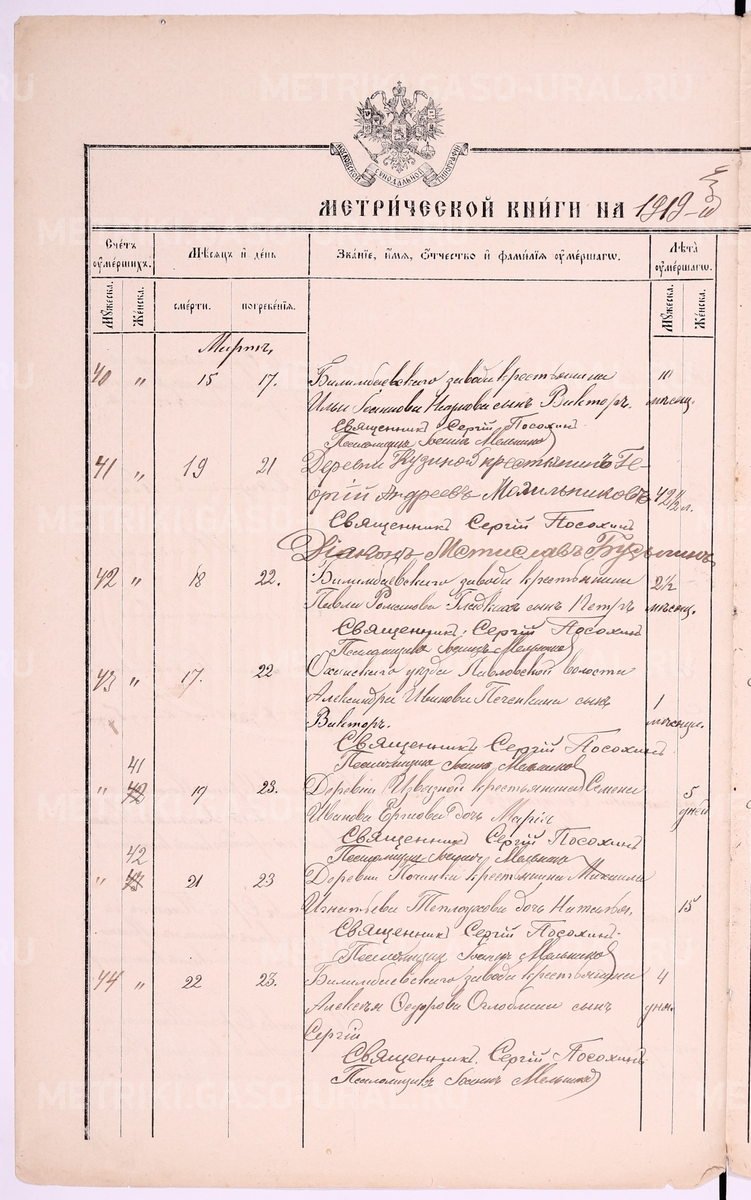 METRIKI.GASO-URAL.RU
МОСКОВСКОЙ СѴНОДАЛЬНОЙ ТИПОГРАФІИ
МЕТРИ́ЧЕСКОЙ КНИ́ГИ НА 1919-й
Сче́тъ ᲂу҆ме́ршихъ.
Мѣ́сяцъ и҆ де́нь
Зва́нїе, и҆́мѧ, ѻ҆́тчество и҆ фами́лїѧ ᲂу҆ме́ршагѡ.
Лѣ́та ᲂу҆ме́ршагѡ.
Мꙋ́жеска.
Же́нска.
сме́рти.
погребе́нїѧ.
Мꙋ́жеска.
Же́нска.
Мартъ,
40 " 15 17. Билимбаевскаго завода крестьянина 10
Ильи Іоаннова сынъ Викторъ. мѣсяц.
Священникъ Сергій Посохинъ
Псаломщикъ Іоаннъ Мельниковъ
41 " 19 21 Деревни Кузиной крестьянинъ Ге-
оргій Андреевъ Мельниковъ 42 1/2 л.
Священникъ Сергій Посохинъ
Діаконъ Мстиславъ
42 " 18 22. Билимбаевскаго завода крестьянина 2 1/2
Павла Романова Гладкихъ сынъ Петръ мѣсяц.
Священникъ Сергій Посохинъ
Псаломщикъ Іоаннъ Мельниковъ
43 " 17. 22 Оханскаго уѣзда Павловской волости
Александра Иванова Печенкина сынъ 1
Викторъ. мѣсяц.
Священникъ Сергій Посохинъ
41 Псаломщикъ Іоаннъ Мельниковъ
" 42 17 23. Деревни Извѣздной крестьянина Семена 5
Иванова дочь Марія дней
Священникъ Сергій Посохинъ
42 Псаломщикъ Іоаннъ Мельниковъ
" 43 21 23 Деревни Починка крестьянина Михаила
Игнатьева Теплоухова дочь Наталья. 15
Священникъ Сергій Посохинъ.
Псаломщикъ Іоаннъ Мельниковъ
44 " 22 23. Билимбаевскаго завода крестьянина 4
Алексѣя Ѳедорова Оглоблина сынъ дня.
Сергій
Священникъ Сергій Посохинъ
Псаломщикъ Іоаннъ Мельниковъ